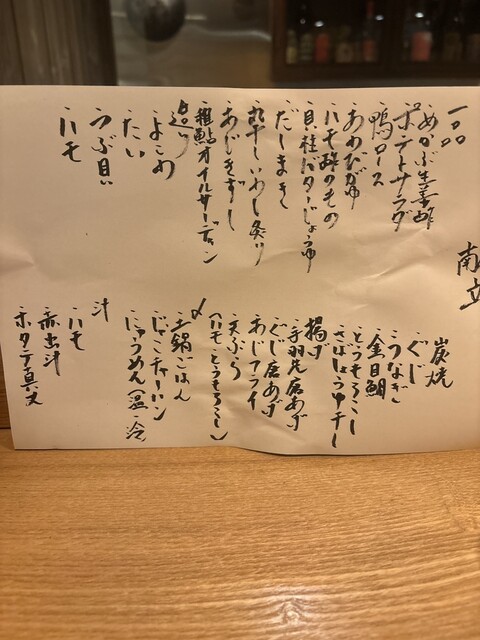 献立
一品
めかぶ生姜酢
ポテトサラダ
鴨ロース
あわびがゆ
ハモ酢のもの
貝柱バターじょうゆ
だしまき
丸干しいわし炙り
あじきずし
稚鮎オイルサーディン
造り
よこわ
たい
つぶ貝
ハモ
炭焼
ぐじ
うなぎ
金目鯛
とうもろこし
さばしょうゆ干し
揚げ
手羽先唐あげ
ぐじ唐あげ
あじフライ
天ぷら
(ハモ、とうもろこし)
〆
土鍋ごはん
じゃこチャーハン
にゅうめん(温・冷
汁
ハモ
赤出汁
ホタテ真丈